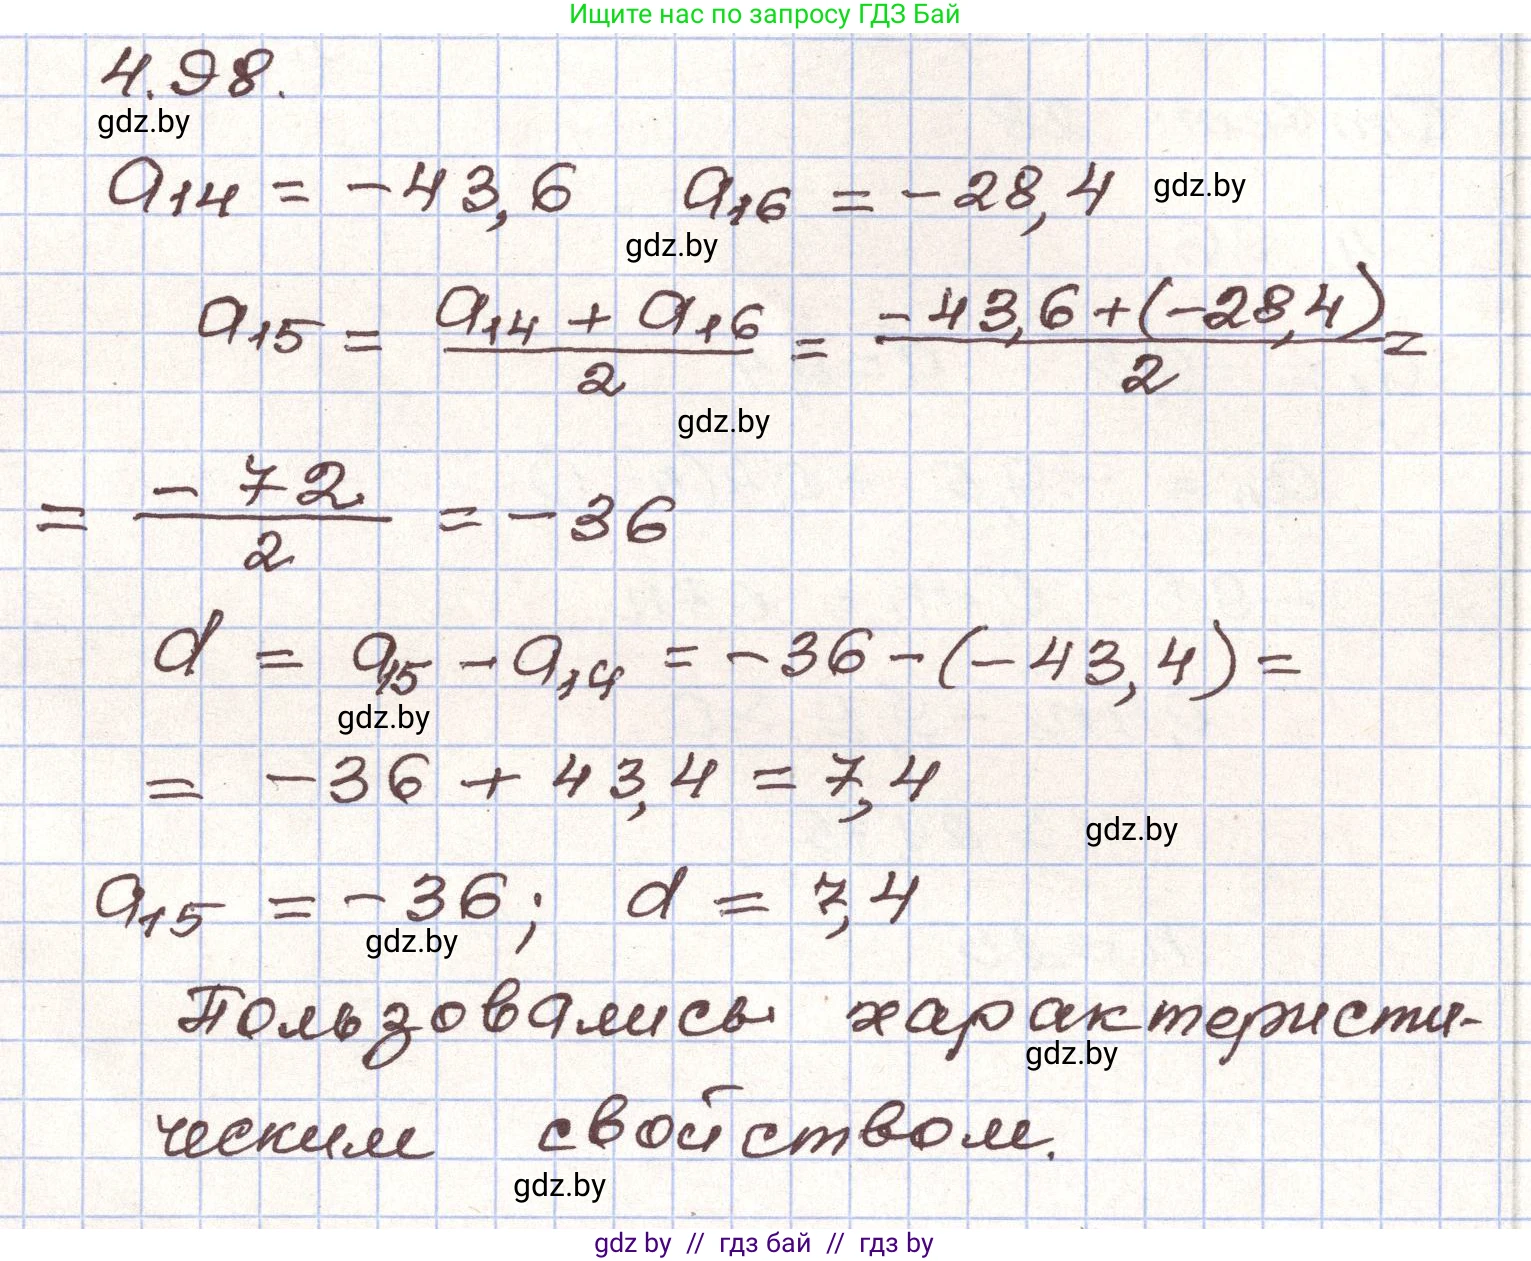 Ищите нас по запросу ГДЗ Бай
4.98.
gdz.by
a₁₄ = -43,6 a₁₆ = -28,4 gdz.by
gdz.by
a₁₅ = (a₁₄ + a₁₆)/2 = (-43,6+(-28,4))/2 =
gdz.by
= -72/2 = -36
d = a₁₅ - a₁₄ = -36-(-43,4) =
gdz.by
= -36 + 43,4 = 7,4
gdz.by
a₁₅ = -36; d = 7,4
gdz.by
Пользовались характеристи-
gdz.by
ческим свойством.
gdz.by
gdz by // гдз бай // гдз by